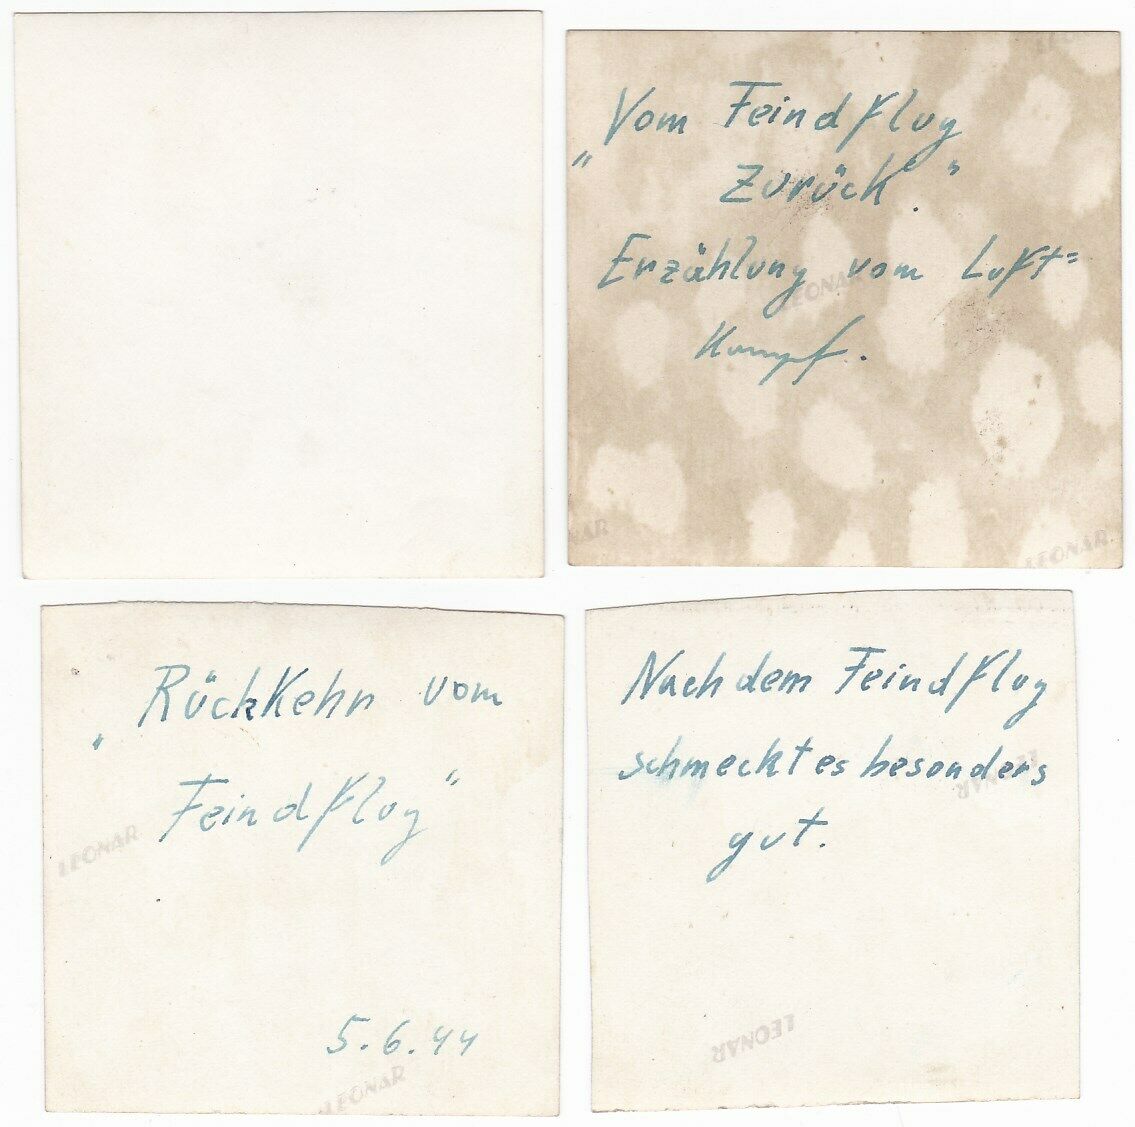 Vom Feindflug
" Zurück."
Erzählung vom Luft=
Kampf.
LEONAR
LEONAR
LEONAR
Rückkehr vom
" Feindflug"
LEONAR
5.6.44
LEONAR
Nach dem Feindflug
schmeckt es besonders
gut.
LEONAR
LEONAR